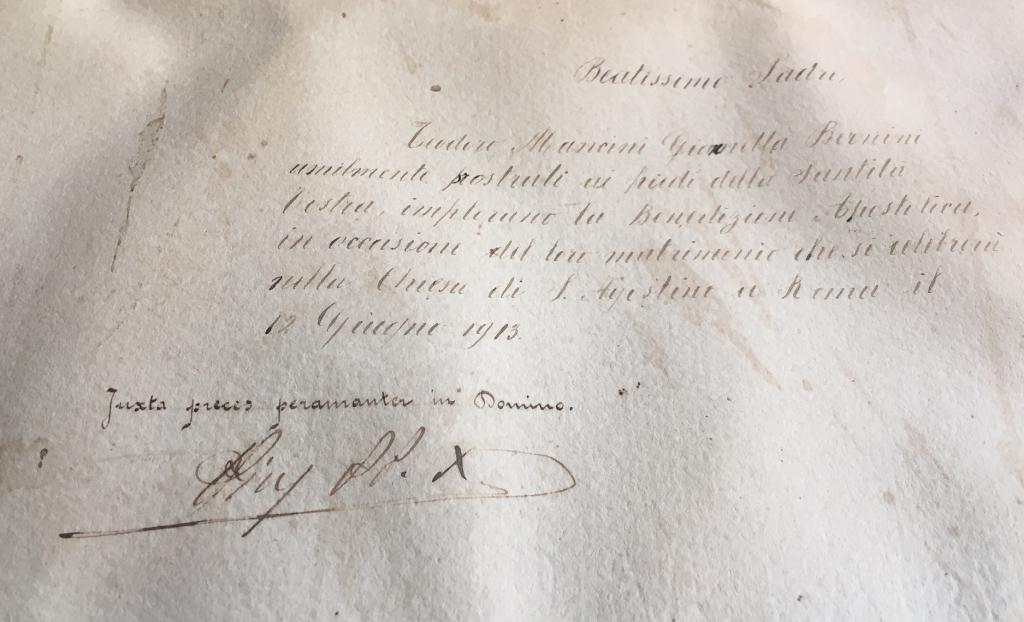 Beatissimo Padre,
Teodoro Mancini Giannetta Bernini
umilmente prostrati ai piedi della Santità
Vostra, implorano la Benedizione Apostolica,
in occasione del loro matrimonio che si celebrerà
nella Chiesa di S. Agostino a Roma il
12 Giugno 1913.
Juxta preces peramanter in Domino.
Pius PP. X